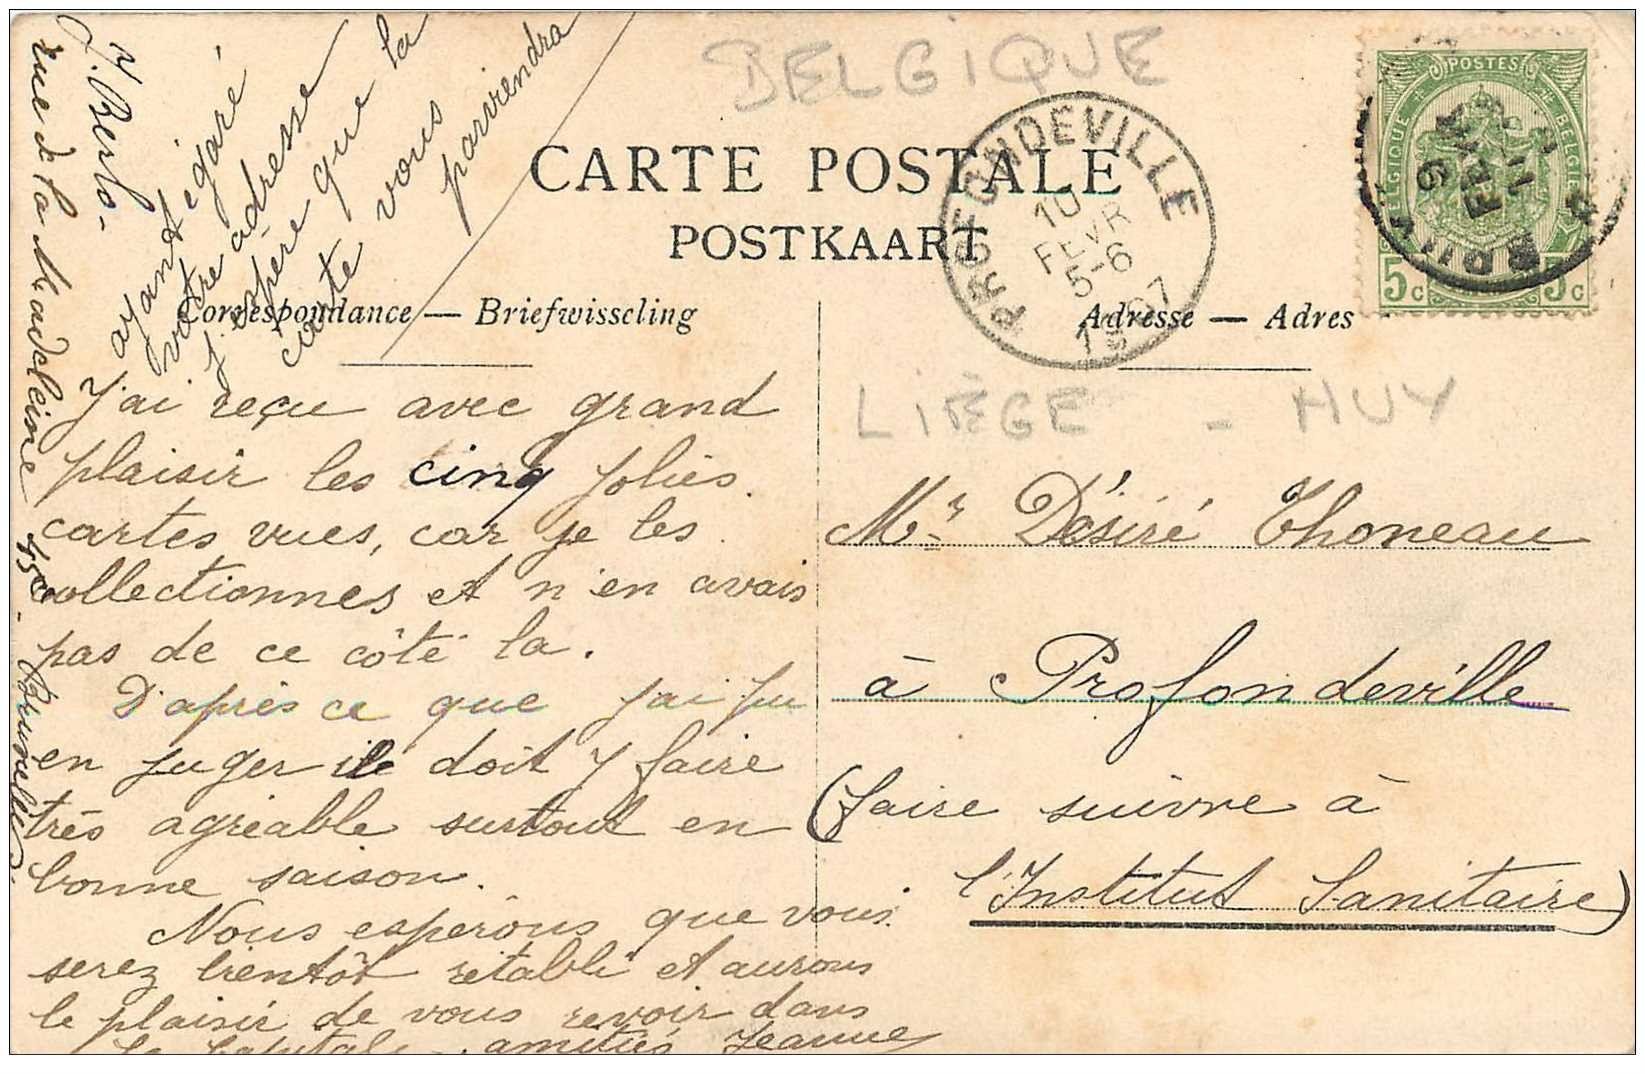 BELGIQUE
CARTE POSTALE
POSTKAART
Correspondance — Briefwisseling
Adresse — Adres
POSTES
BELGIQUE BELGIË
5c 5c
PROFONDEVILLE
10
FEVR
5-6
1907
LIÈGE - HUY
J. Berlo.
rue de la Madeleine 45
Bruxelles.
ayant égaré
votre adresse
j'espère que la
carte vous
parviendra
J'ai reçu avec grand
plaisir les cinq jolies
cartes vues, car je les
collectionnes et n'en avais
pas de ce côté la.
D'après ce que j'ai pu
en juger il doit y faire
très agréable surtout en
bonne saison.
Nous esperons que vous
serez bientôt rétabli et aurons
le plaisir de vous revoir dans
la Capitale. amitiés Jeanne
Mr Désiré Thoneau
à Profondeville
(faire suivre à
l'Institut Sanitaire)